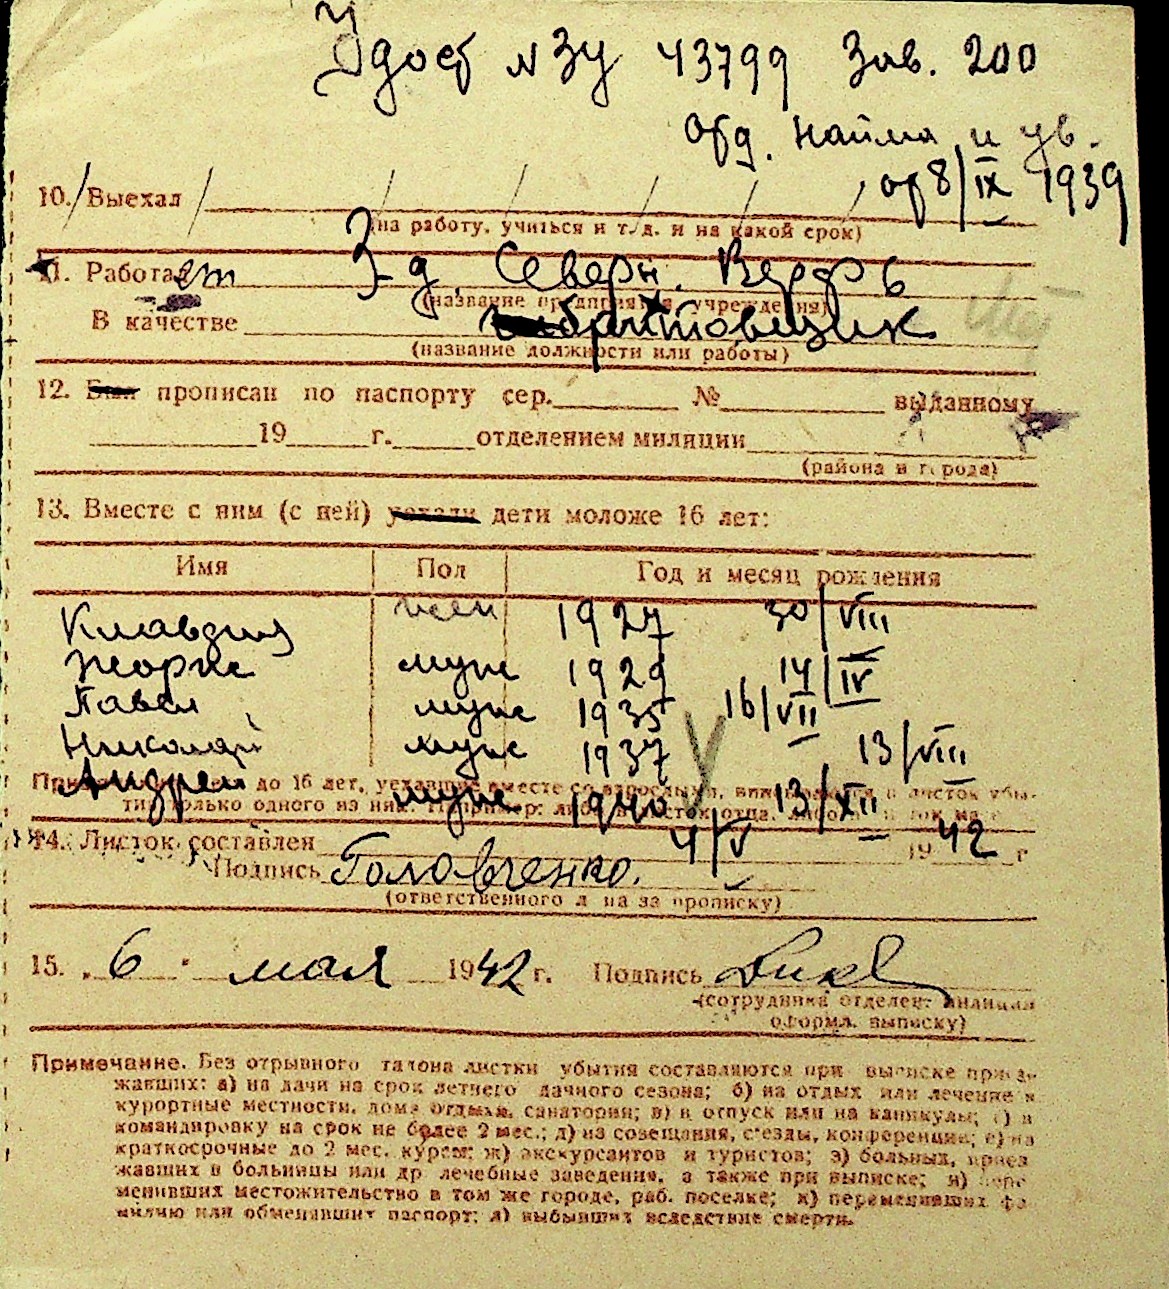 Удост № ЗУ 43799 Зав. 200
отд. найма и ув.
от 8/IX 1939
10. Выехал
(на работу, учиться и т. д. и на какой срок)
11. Работает З-д. Северн. Верфь
(название предприятия, учреждения)
В качестве бритовщик
(название должности или работы)
12. Был прописан по паспорту сер. № выданному
19 г. отделением милиции
(района и города)
13. Вместе с ним (с ней) уехали дети моложе 16 лет:
Имя Пол Год и месяц рождения
Клавдия жен 1927 30/VIII
Жорж муж 1929 14/IV
Павел муж 1935 16/VII
Николай муж 1937 13/VIII
Андрей муж 1940 13/XII
до 16 лет, уехавшие вместе со взрослыми, в листок убы-
тия только одного из них. Например: либо в листок отца,
14. Листок составлен 4/V 1942 г
Подпись Головченко.
(ответственного лица за прописку)
15. „6" мая 1942 г. Подпись
(сотрудника отделен. милиции
оформл. выписку)
Примечание. Без отрывного талона листки убытия составляются при выписке приез-
жавших: а) на дачи на срок летнего дачного сезона; б) на отдых или лечение в
курортные местности, дома отдыха, санатории; в) в отпуск или на каникулы; г) в
командировку на срок не более 2 мес.; д) на совещания, съезды, конференции; е) на
краткосрочные до 2 мес. курсы; ж) экскурсантов и туристов; з) больных, приез
жавших в больницы или др лечебные заведения, а также при выписке; и) пере
менивших местожительство в том же городе, раб. поселке; к) переменивших фа
милию или обменявших паспорт; л) выбывших вследствие смерти.